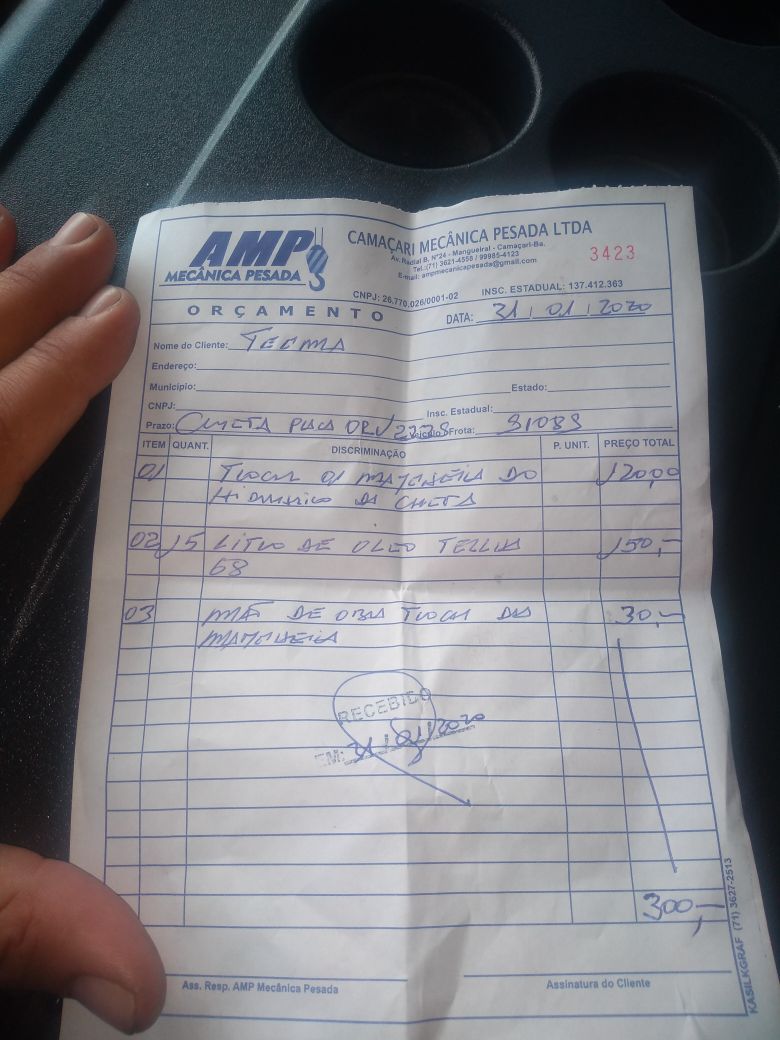 AMP
MECÂNICA PESADA
CAMAÇARI MECÂNICA PESADA LTDA
Av. Radial B, N°24 - Mangueiral - Camaçari-Ba.
Tel.:(71) 3621-4556 / 99985-4123
E-mail: ampmecanicapesada@gmail.com
3423
CNPJ: 26.770.026/0001-02 INSC. ESTADUAL: 137.412.363
ORÇAMENTO DATA: 31 01 2020
Nome do Cliente: TECMA
Endereço:
Município: Estado:
CNPJ: Insc. Estadual:
Prazo: PLACA Veículo / Frota:
ITEM QUANT. DISCRIMINAÇÃO P. UNIT. PREÇO TOTAL
01 TROCAR 01 MANGUEIRA DO 120,00
HIDRAULICO DA
02 15 LITRO DE OLEO TELLUS 150,-
68
03 DE OBRA TROCAR DAS 30,-
MANGUEIRA
RECEBIDO
EM: 31/01/2020
300,-
Ass. Resp. AMP Mecânica Pesada Assinatura do Cliente
KASILKGRAF (71) 3627-2513